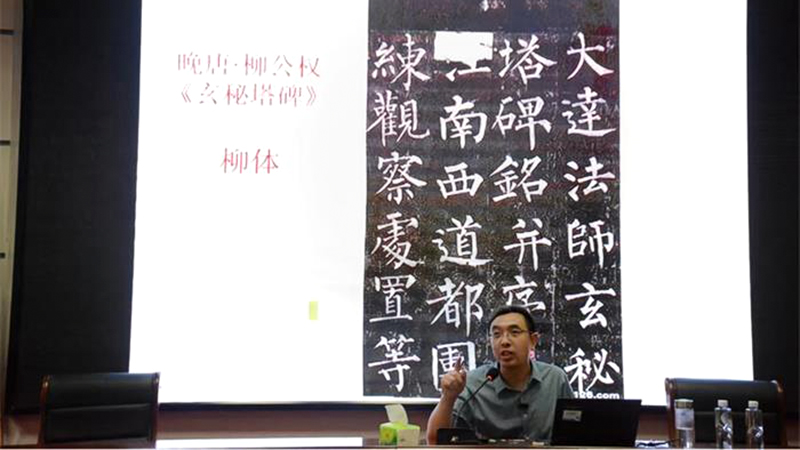 晚唐·柳公权
《玄秘塔碑》
柳体
大達法師玄秘
塔碑銘并序
江南西道都團
練觀察處置等